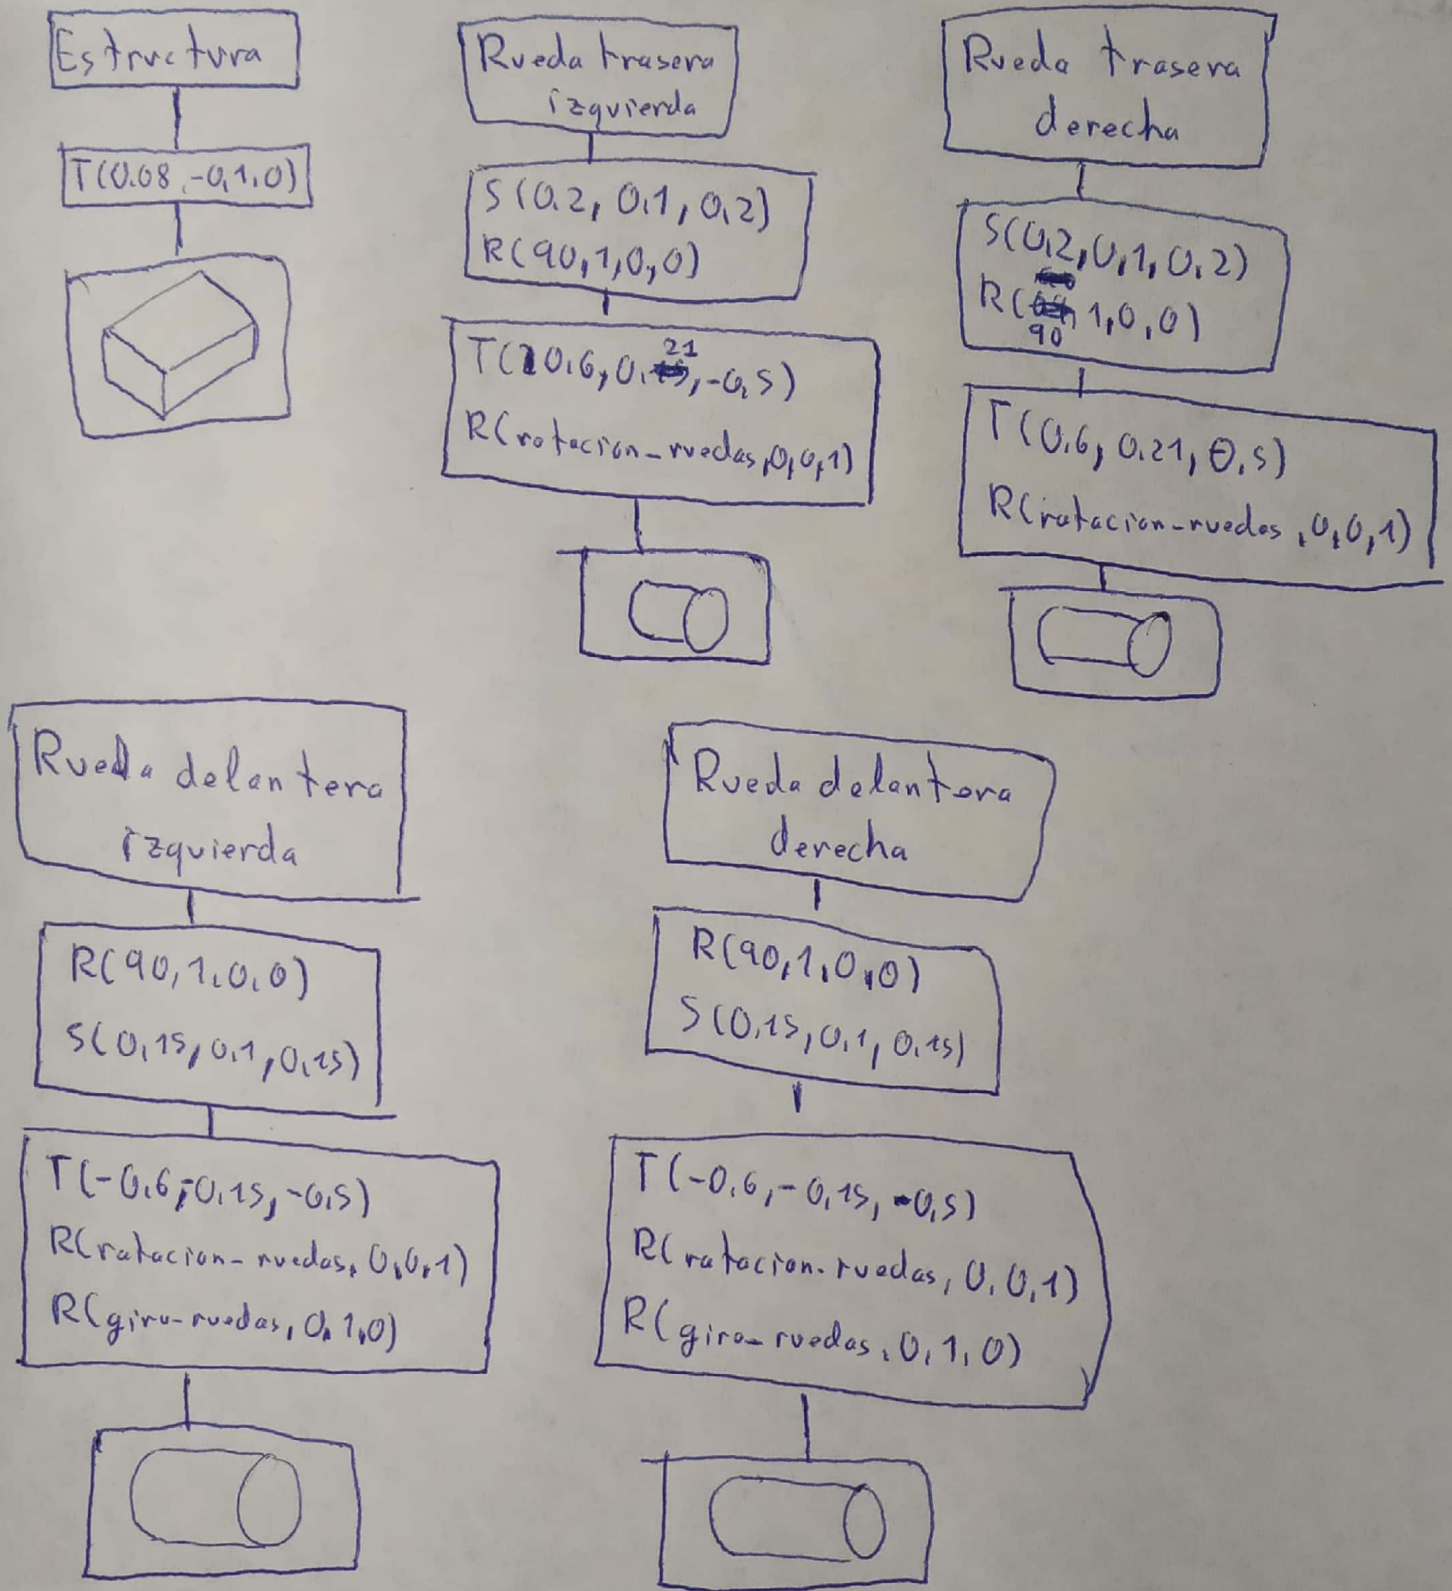 Estructura
T(0.08,-0,1,0)
Rueda trasera
izquierda
S(0.2, 0.1, 0.2)
R(90,1,0,0)
T(0.6, 0.21, -0,5)
R(rotacion-ruedas,0,0,1)
Rueda trasera
derecha
S(0.2,0,1,0.2)
R(90, 1,0,0)
T(0.6, 0.21, 0.5)
R(rotacion-ruedas,0,0,1)
Rueda delantera
izquierda
R(90,1,0,0)
S(0,15,0.1,0,15)
T(-0.6,-0,15,-0,5)
R(rotacion-ruedas,0,0,1)
R(giro-ruedas,0,1,0)
Rueda delantera
derecha
R(90,1,0,0)
S(0,15,0.1,0,15)
T(-0.6,-0,15,-0,5)
R(rotacion-ruedas, 0,0,1)
R(giro-ruedas,0,1,0)